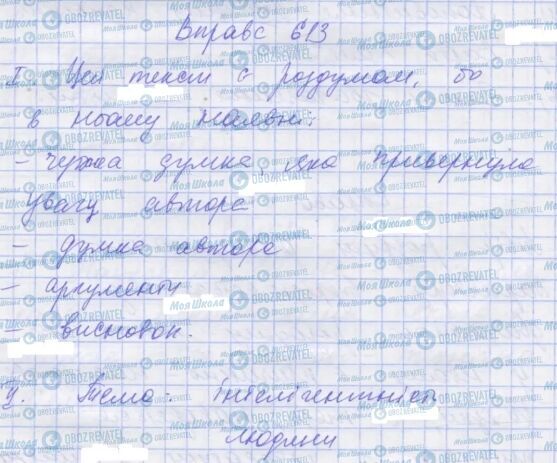 Вправа 613
I. Цей текст є роздумом, бо
в ньому наявні:
- чужа думка, яка привернула
увагу автора
- думка автора
- аргументи
висновок.
II. Тема: інтелігентність
людини